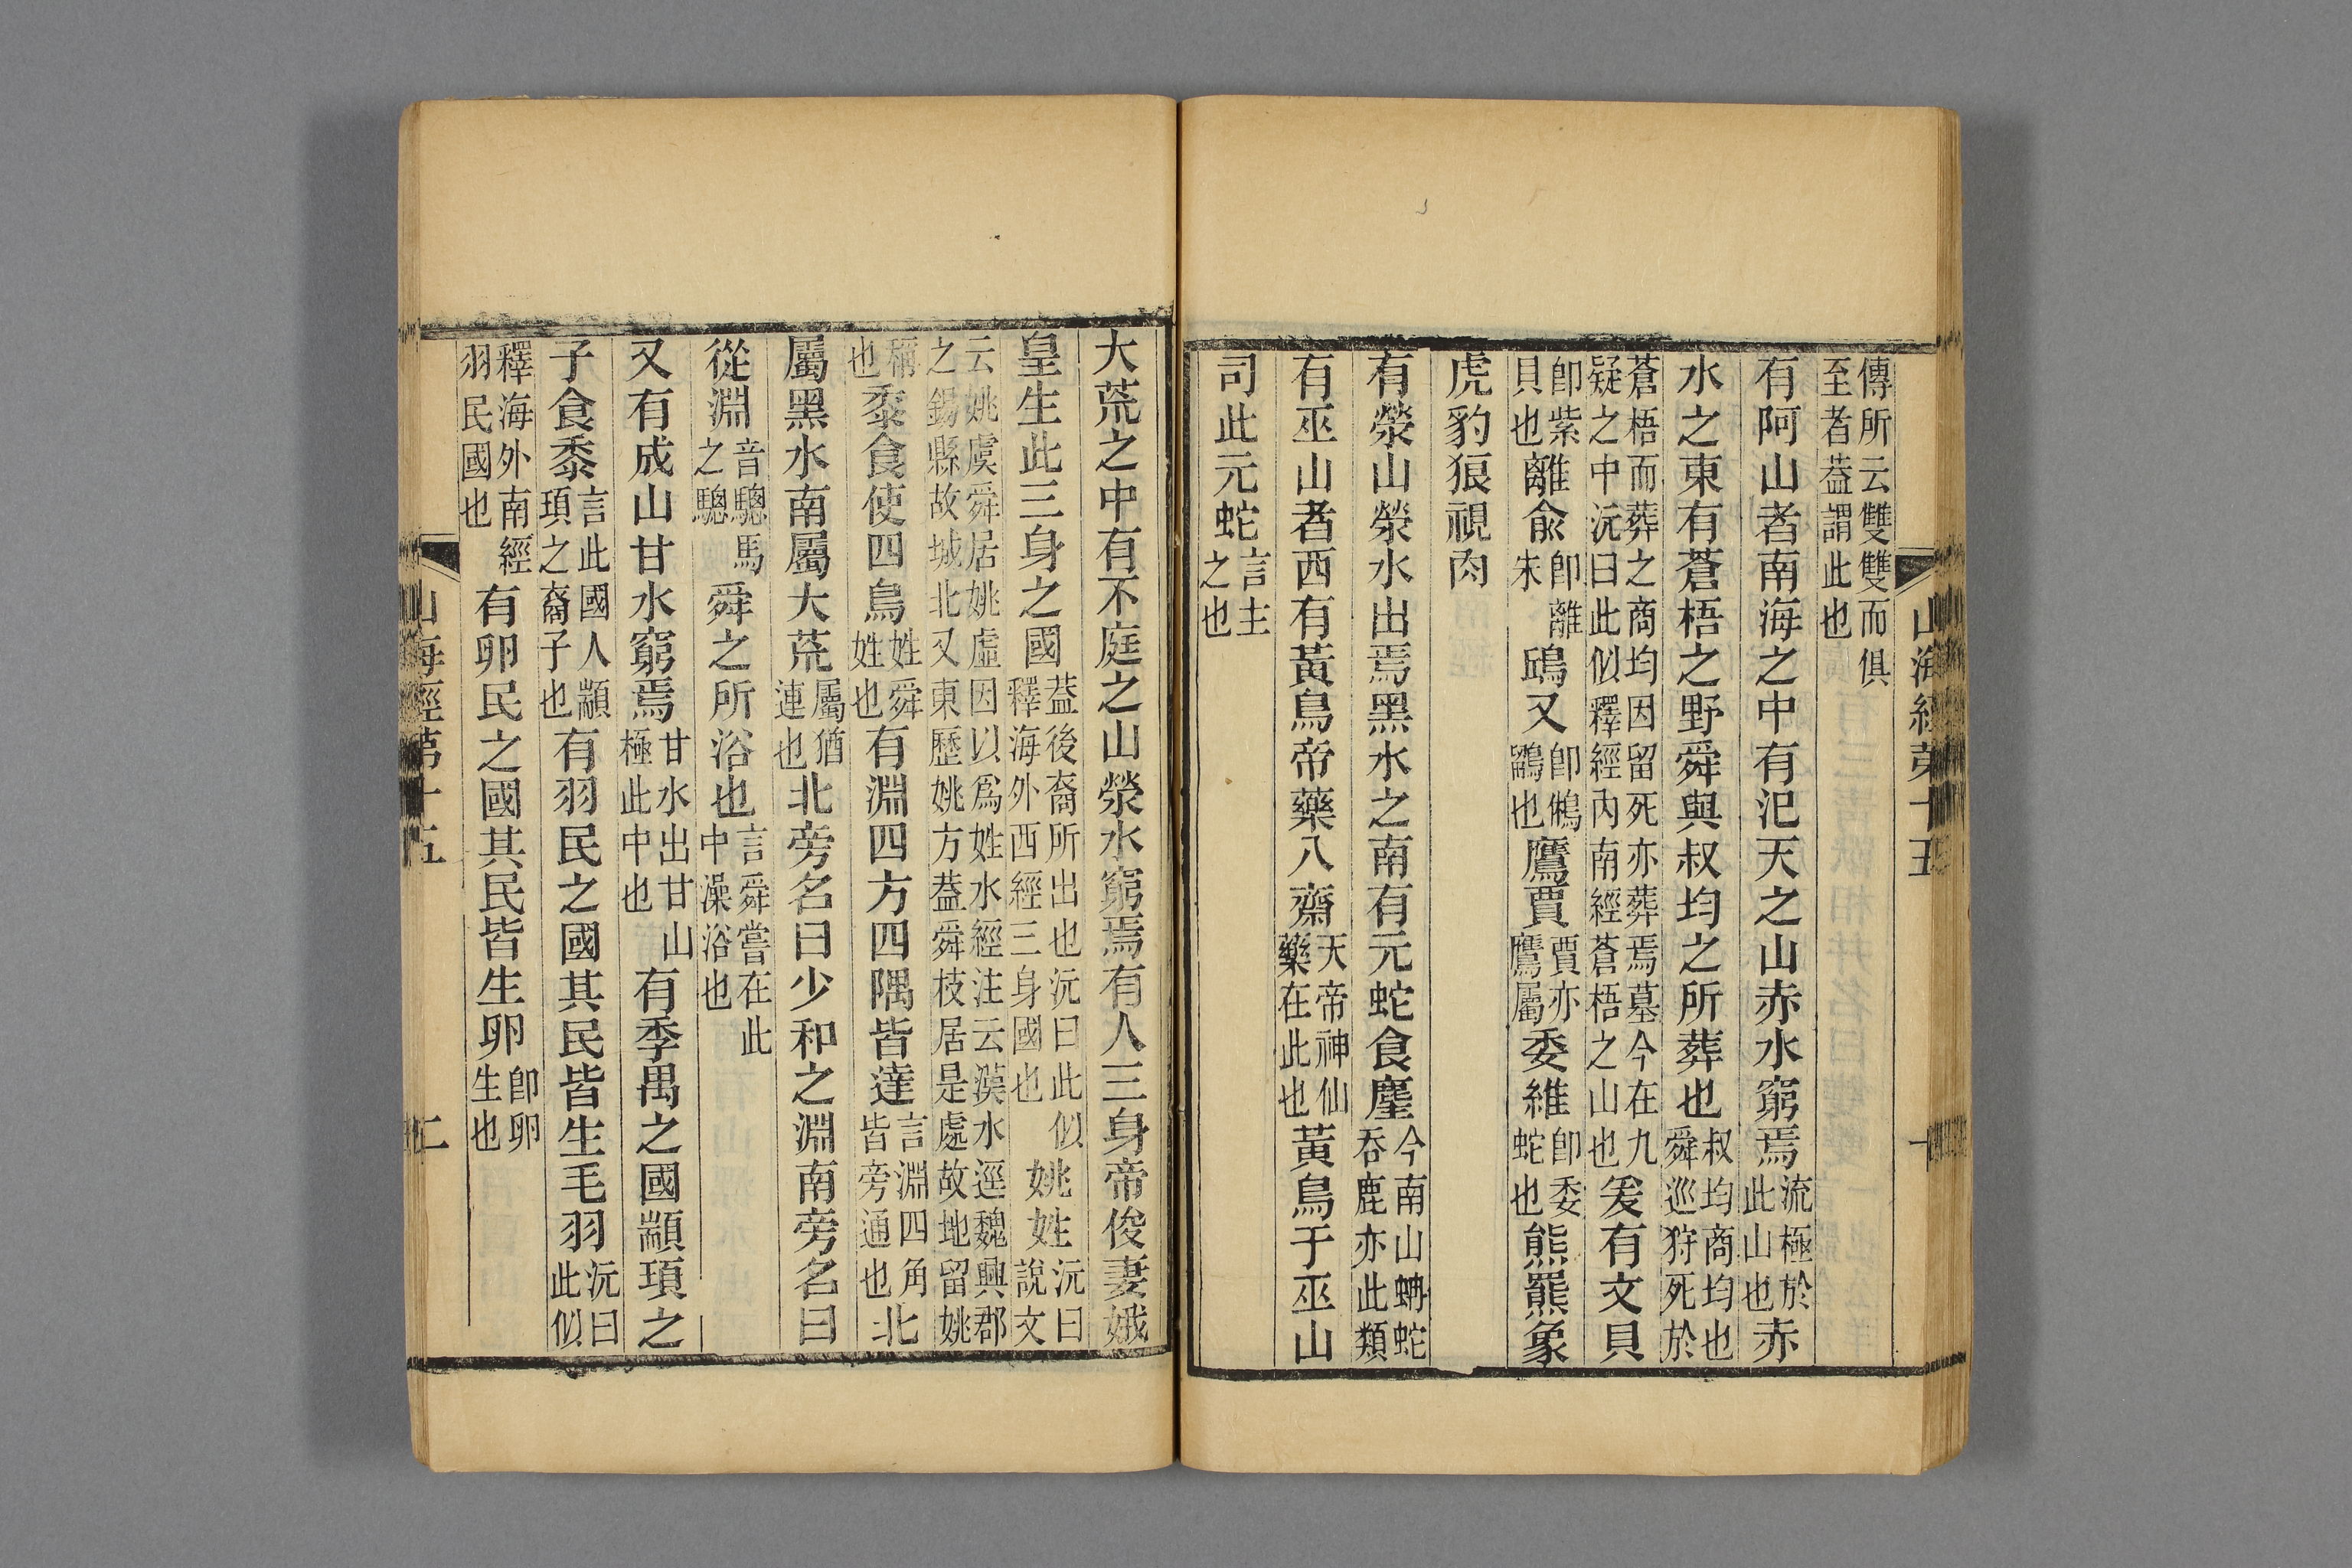 山海經第十五
傳所云雙雙而俱
至者葢謂此也
有阿山者南海之中有汜天之山赤水窮焉流極於此山也赤
水之東有蒼梧之野舜與叔均之所葬也叔均商均也舜巡狩死於
蒼梧而葬之商均因留死亦葬焉墓今在九疑之中沅曰此似釋經內南經蒼梧之山也爰有文貝
卽紫貝也離兪卽離朱鴟又卽鵂鶹也鷹賈賈亦鷹屬委維卽委蛇也熊羆象
虎豹狼視肉
有滎山滎水出焉黑水之南有元蛇食麈今南山蚺蛇吞鹿亦此類
有巫山者西有黃鳥帝藥八齋天帝神仙藥在此也黃鳥于巫山
司此元蛇言主之也
大荒之中有不庭之山滎水窮焉有人三身帝俊妻娥
皇生此三身之國葢後裔所出也沅曰此似釋海外西經三身國也姚姓沅曰說文
云姚虞舜居姚虛因以爲姓水經注云漢水逕魏興郡之錫縣故城北又東歷姚方葢舜枝居是處故地留姚
稱也黍食使四鳥姓舜姓也有淵四方四隅皆達言淵四角皆旁通也北
屬黑水南屬大荒屬猶連也北旁名曰少和之淵南旁名曰
從淵音驄馬之驄舜之所浴也言舜嘗在此中澡浴也
又有成山甘水窮焉甘水出甘山極此中也有季禺之國顓頊之
子食黍言此國人顓頊之裔子也有羽民之國其民皆生毛羽沅曰此似
釋海外南經羽民國也有卵民之國其民皆生卵卽卵生也
山海經第十五 二